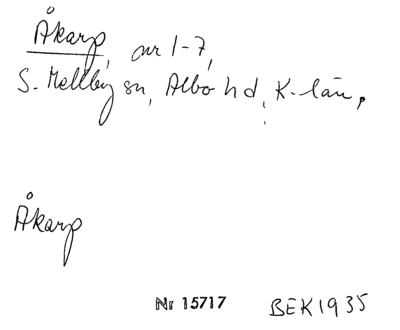 Åkarp, nr 1-7,
S. Mellby sn, Albo hd, K-län.
Åkarp
Nr 15717 BEK 1935